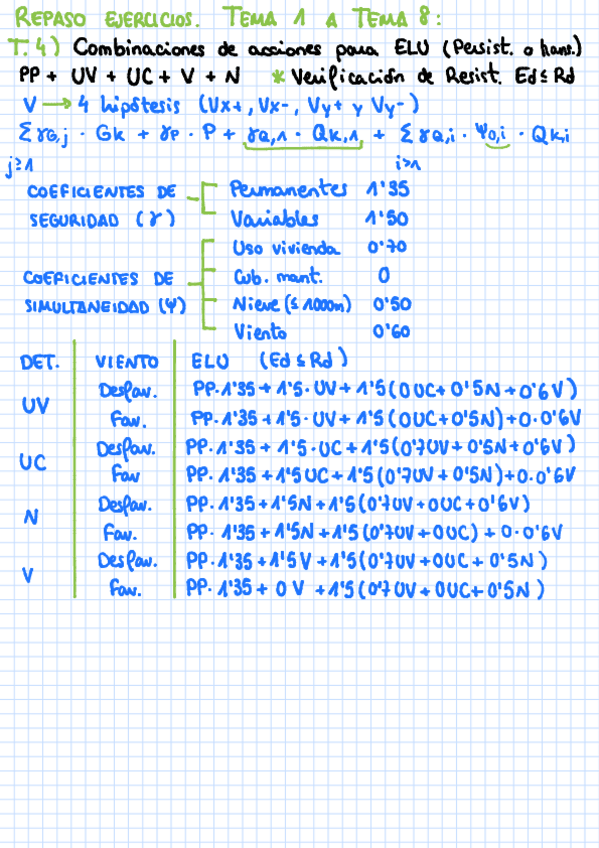 REPASO EJERCICIOS. TEMA 1 A TEMA 8:
T.4) Combinaciones de acciones para ELU (Persist. o trans.)
PP + UV + UC + V + N * Verificación de Resist. Ed ≤ Rd
V → 4 hipótesis (Vx+, Vx-, Vy+ y Vy-)
Σ γG,j · Gk + γP · P + γQ,1 · Qk,1 + Σ γQ,i · Ψ0,i · Qk,i
j≥1 i>1
COEFICIENTES DE SEGURIDAD (γ)
Permanentes 1'35
Variables 1'50
COEFICIENTES DE SIMULTANEIDAD (Ψ)
Uso vivienda 0'70
Cub. mant. 0
Nieve (≤ 1000m) 0'50
Viento 0'60
DET. VIENTO ELU (Ed ≤ Rd)
UV Desfav. PP·1'35 + 1'5·UV + 1'5(0UC + 0'5N + 0'6V)
Fav. PP·1'35 + 1'5·UV + 1'5(0UC + 0'5N) + 0·0'6V
UC Desfav. PP·1'35 + 1'5·UC + 1'5(0'7UV + 0'5N + 0'6V)
Fav PP·1'35 + 1'5UC + 1'5(0'7UV + 0'5N) + 0·0'6V
N Desfav. PP·1'35 + 1'5N + 1'5(0'7UV + 0UC + 0'6V)
Fav. PP·1'35 + 1'5N + 1'5(0'7UV + 0UC) + 0·0'6V
V Desfav. PP·1'35 + 1'5V + 1'5(0'7UV + 0UC + 0'5N)
Fav. PP·1'35 + 0V + 1'5(0'7UV + 0UC + 0'5N)